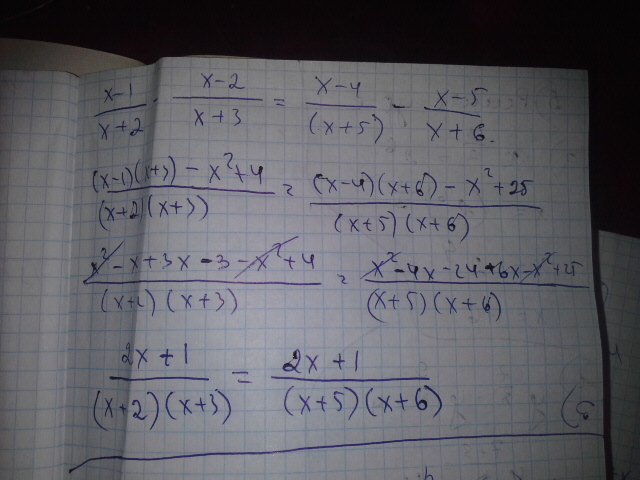 x-1/x+2 - x-2/x+3 = x-4/(x+5) - x-5/x+6.
(x-1)(x+3) - x²+4/(x+2)(x+3) = (x-4)(x+6) - x²+25/(x+5)(x+6)
x² - x+3x - 3 - x²+4/(x+2)(x+3) = x²-4x-24+6x-x²+25/(x+5)(x+6)
2x+1/(x+2)(x+3) = 2x+1/(x+5)(x+6)